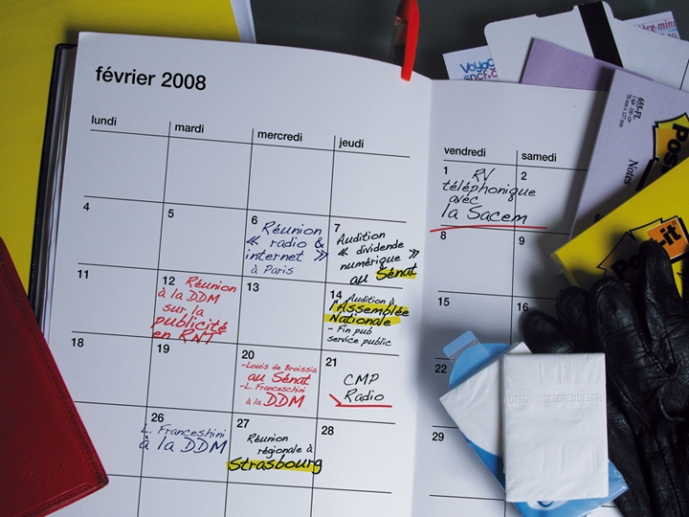 février 2008
lundi
mardi
mercredi
jeudi
vendredi
samedi
1
RV
téléphonique
avec
la Sacem
2
4
5
6
Réunion
« radio &
internet »
à Paris
7
Audition
« dividende
numérique »
au Sénat
8
9
11
12 Réunion
à la DDM
sur la
publicité
en RNT
13
14
Audition à
l'Assemblée
Nationale
- Fin pub
service public
15
16
18
19
20
-Louis de Broissia
au Sénat
-L. Franceschini
à la DDM
21
CMP
Radio
22
26
L. Franceshini
à la DDM
27
Réunion
régionale à
Strasbourg
28
29
Notes
Post-it